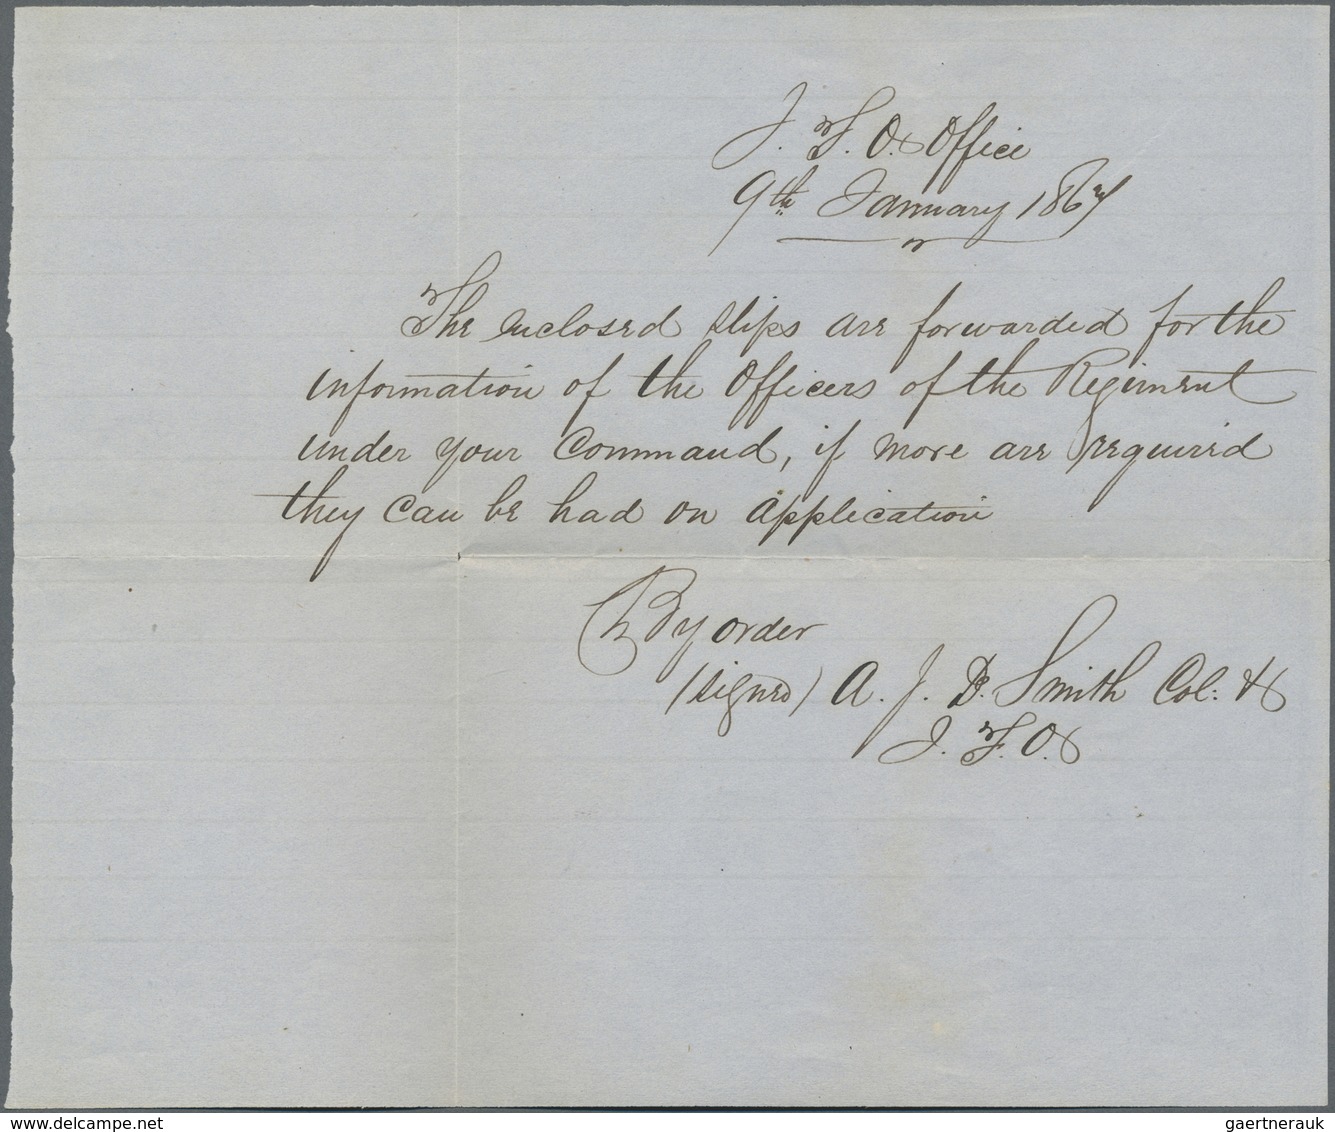 J. F. O. Office
9th January 1867
The enclosed slips are forwarded for the
information of the Officers of the Regiment
under your Command, if more are required
they can be had on application
By order
(signed) A. J. D. Smith Col: &
J. F. O.
gaertnerauk